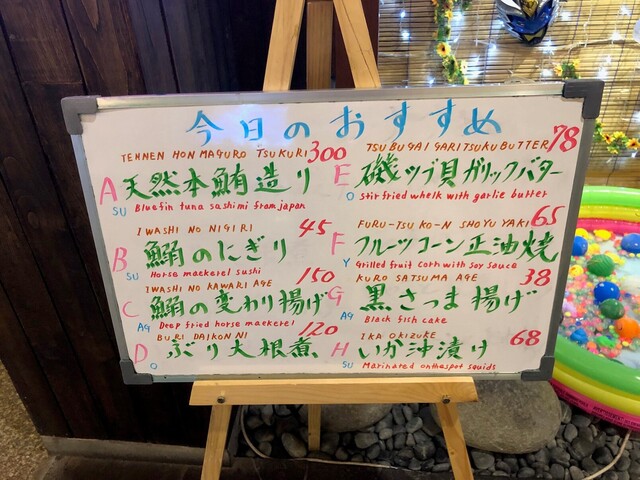 今日のおすすめ
TENNEN HON MAGURO TSUKURI 300
A 天然本鮪造り
SU Bluefin tuna sashimi from japan
IWASHI NO NIGIRI 45
B 鰯のにぎり
SU Horse maekerel sushi
IWASHI NO KAWARI AGE 150
C 鰯の変わり揚げ
AG Deep fried horse maekerel
BURI DAIKON NI 120
D ぶり大根煮
O
TSUBUGAI GARITSUKU BUTTER 78
E 磯ツブ貝ガリックバター
O Stir fried whelk with garlic butter
FURU-TSU KO-N SHOYU YAKI 65
F フルーツコーン正油焼
Y Grilled fruit corn with soy sauce
KURO SATSUMA AGE 38
G 黒さつま揚げ
AG Black fish cake
IKA OKIZUKE 68
H いか沖漬け
SU Marinared onthespot squids